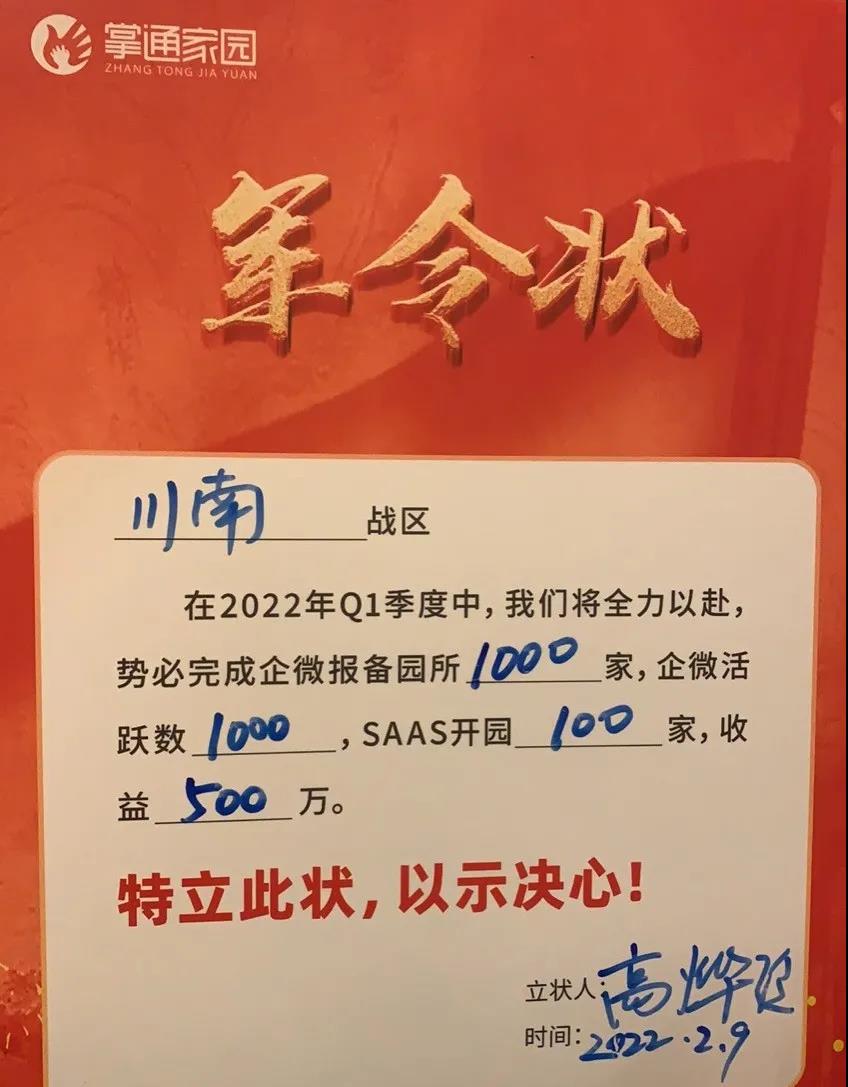 掌通家园
ZHANG TONG JIA YUAN
军令状
川南战区
在2022年Q1季度中，我们将全力以赴，
势必完成企微报备园所1000家，企微活
跃数1000，SAAS开园100家，收
益500万。
特立此状，以示决心！
立状人：高烨
时间：2022.2.9